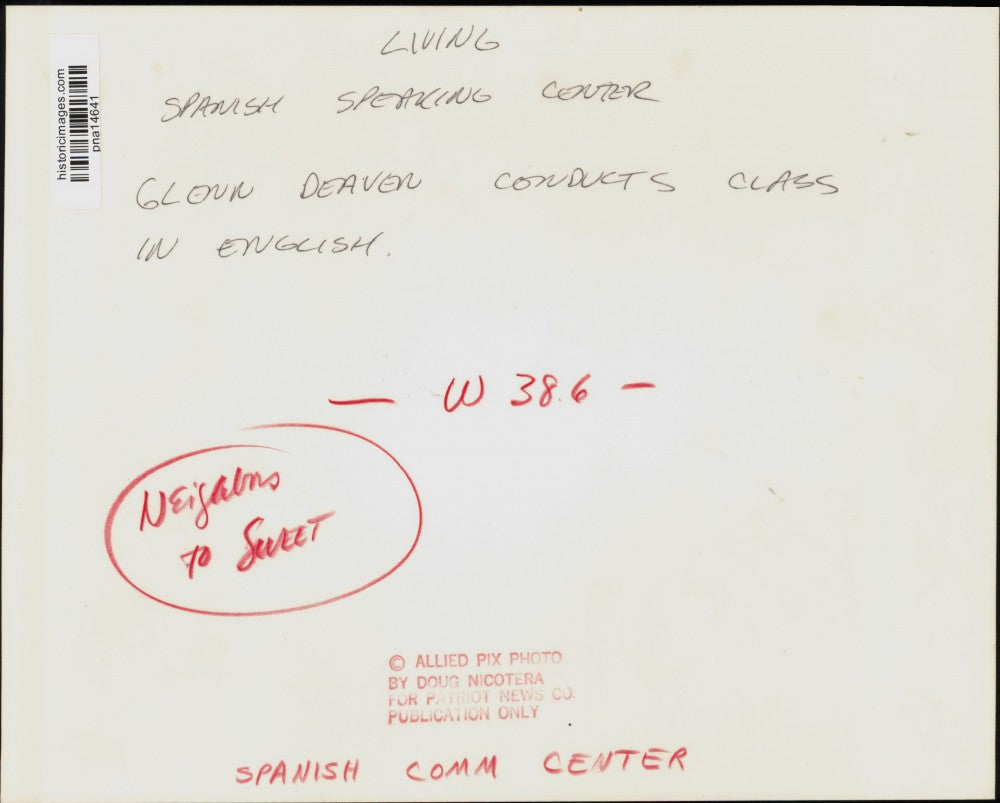 LIVING
SPANISH SPEAKING CENTER
GLENN DEAVEN CONDUCTS CLASS
IN ENGLISH.
— W 38.6 —
NEighbors
to SWEET
© ALLIED PIX PHOTO
BY DOUG NICOTERA
FOR PATRIOT NEWS CO.
PUBLICATION ONLY
SPANISH COMM CENTER
historicimages.com
pna14641